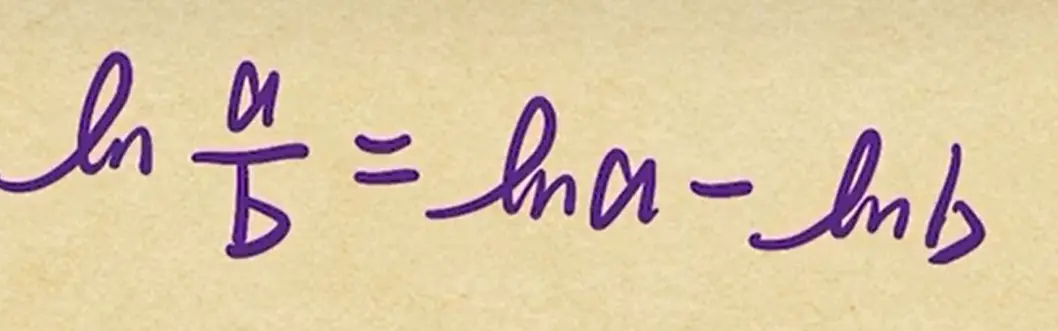 ln a/b = ln a - ln b